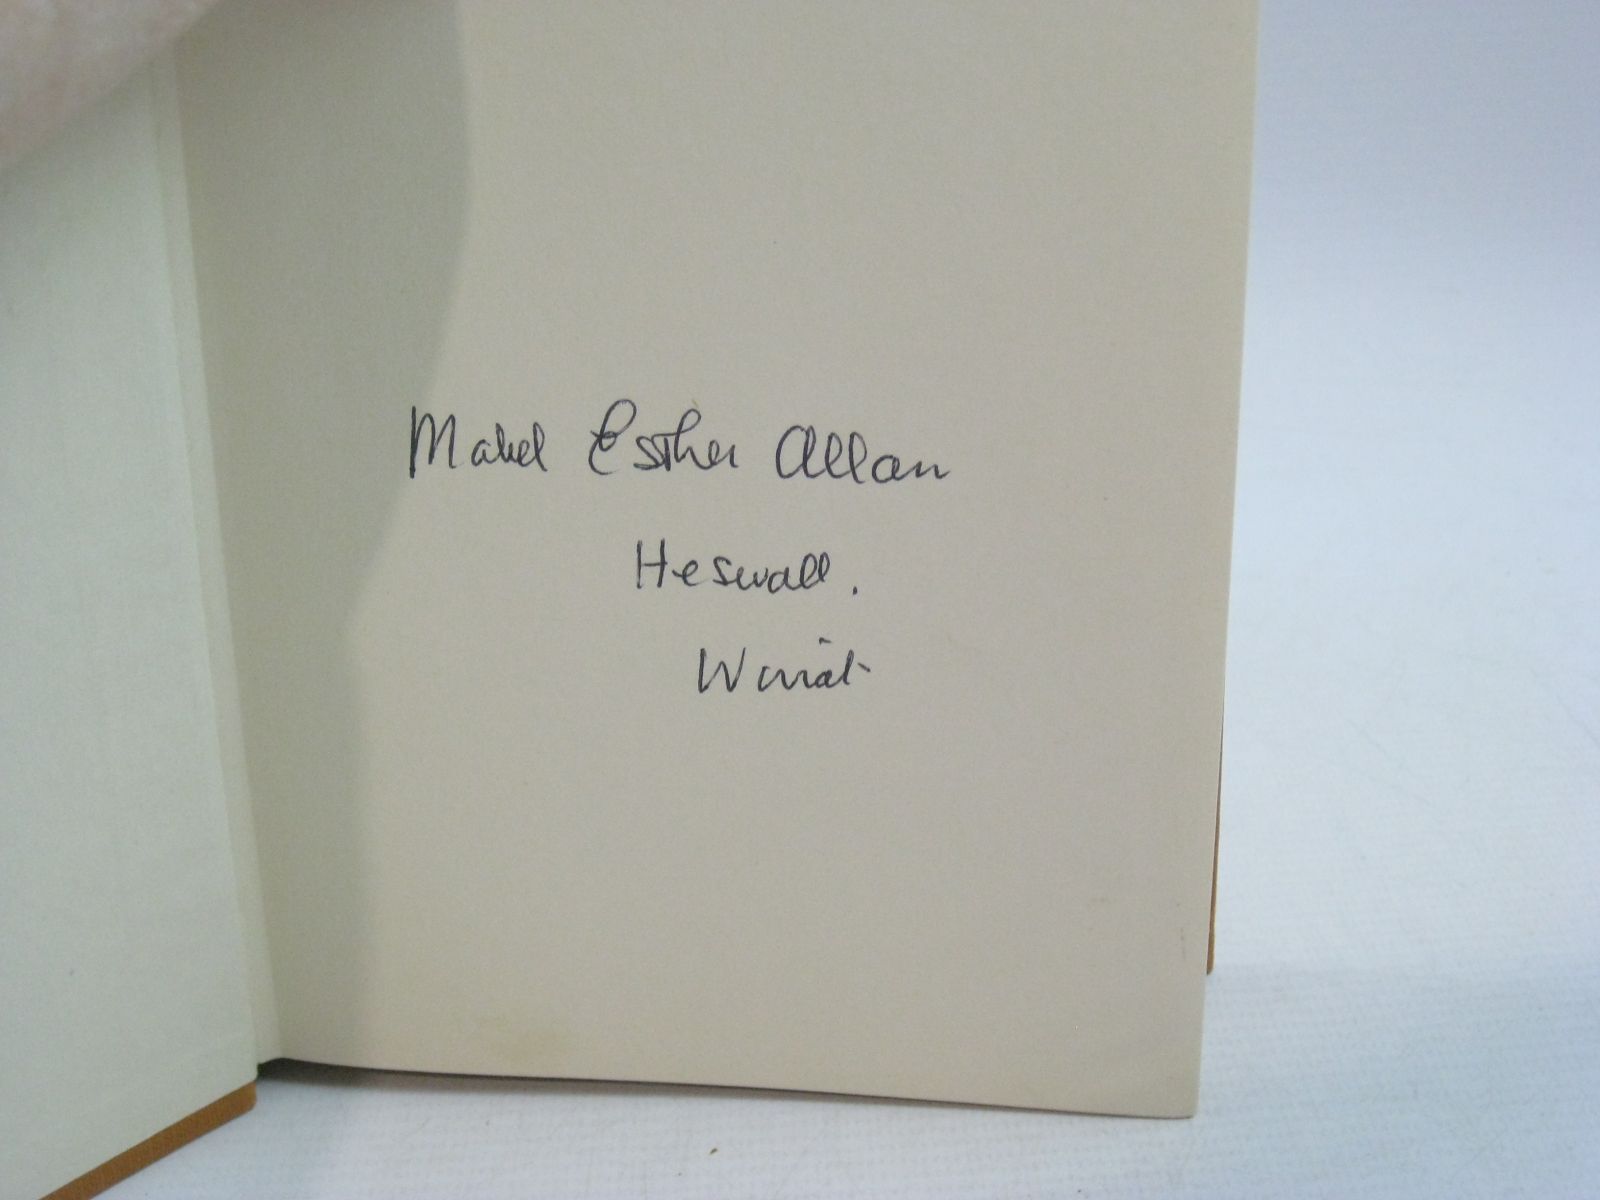 Mabel Esther Allan
Heswall.
Wirral